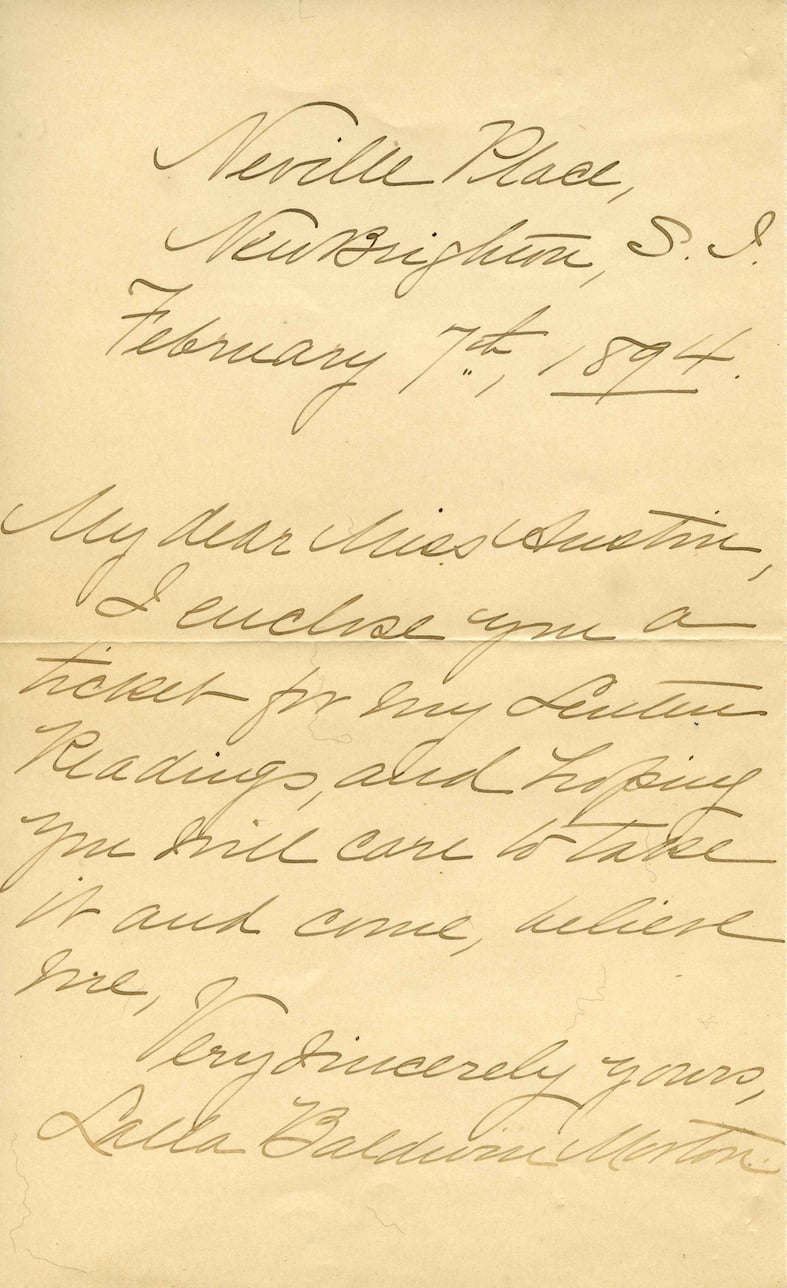 Neville Place,
New Brighton, S. I.
February 7th, 1894.
My dear Miss Austin,
I enclose you a
ticket for my Lenten
Readings, and hoping
you will care to take
it and come, believe
me,
Very sincerely yours,
Lalla Baldwin Morton.